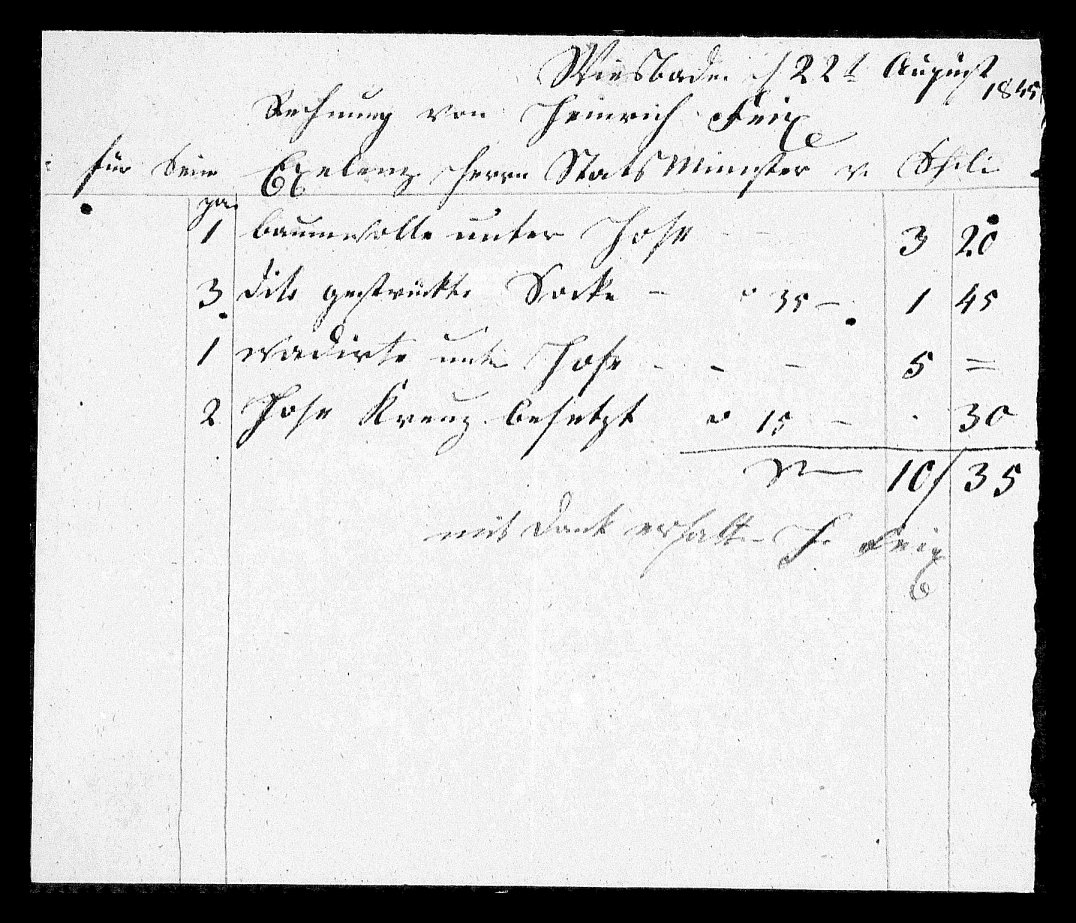 Wiesbaden d 22t August 1845
Rechnung von Heinrich Feix
für Seine Exelenz Herrn Stats Minister v
pa
1 baumwolle unter Hose - - 3 20
3 dito gestrükte Socke - a 35 - 1 45
1 wadirte unter Hose - - - 5 =
2 Hose Kreuz besetzt a 15 - . 30
10 / 35
mit Dank erhalten H. Feix